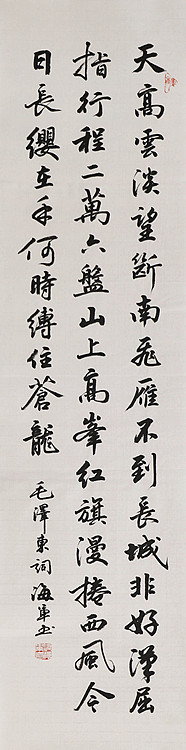 天高雲淡望斷南飛雁不到長城非好漢屈
指行程二萬六盤山上高峯紅旗漫捲西風今
日長纓在手何時縛住蒼龍
毛澤東詞海軍书